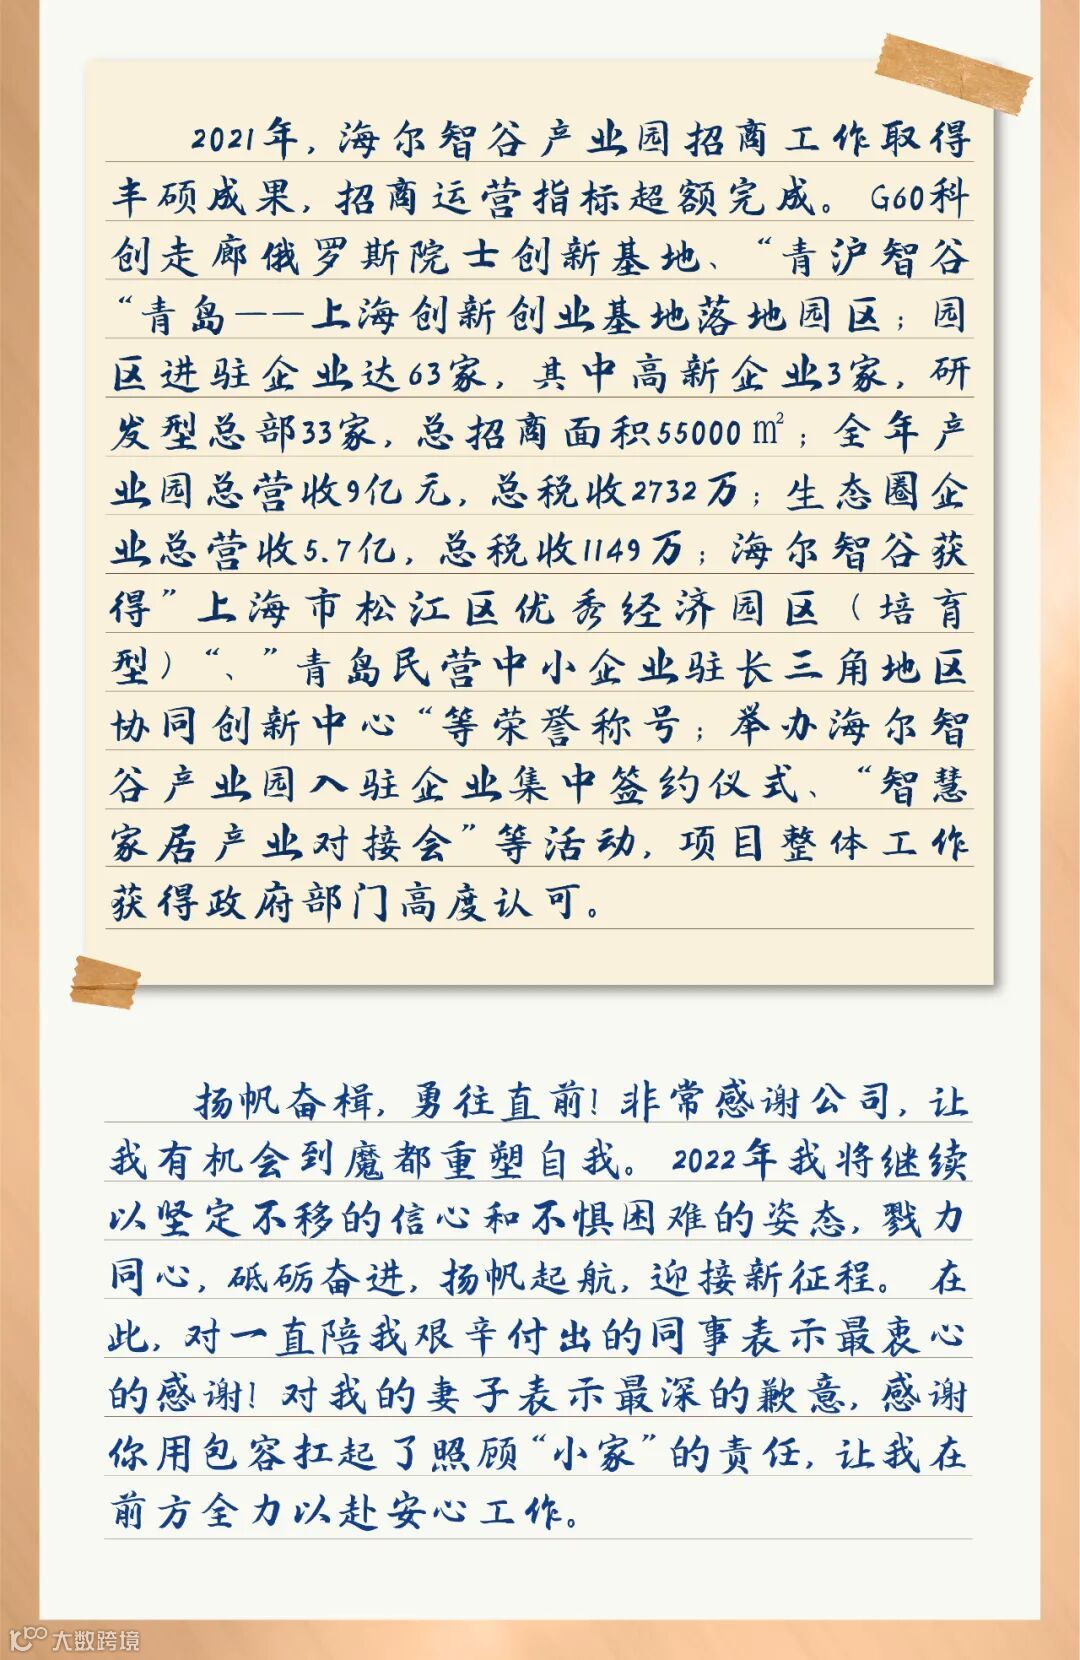 2021年，海尔智谷产业园招商工作取得
丰硕成果，招商运营指标超额完成。G60科
创走廊俄罗斯院士创新基地、“青沪智谷
“青岛——上海创新创业基地落地园区；园
区进驻企业达63家，其中高新企业3家，研
发型总部33家，总招商面积55000㎡；全年产
业园总营收9亿元，总税收2732万；生态圈企
业总营收5.7亿，总税收1149万；海尔智谷获
得”上海市松江区优秀经济园区（培育
型）“、”青岛民营中小企业驻长三角地区
协同创新中心“等荣誉称号；举办海尔智
谷产业园入驻企业集中签约仪式、“智慧
家居产业对接会”等活动，项目整体工作
获得政府部门高度认可。
扬帆奋楫，勇往直前！非常感谢公司，让
我有机会到魔都重塑自我。2022年我将继续
以坚定不移的信心和不惧困难的姿态，戮力
同心，砥砺奋进，扬帆起航，迎接新征程。 在
此，对一直陪我艰辛付出的同事表示最衷心
的感谢！对我的妻子表示最深的歉意，感谢
你用包容扛起了照顾“小家”的责任，让我在
前方全力以赴安心工作。
大数跨境